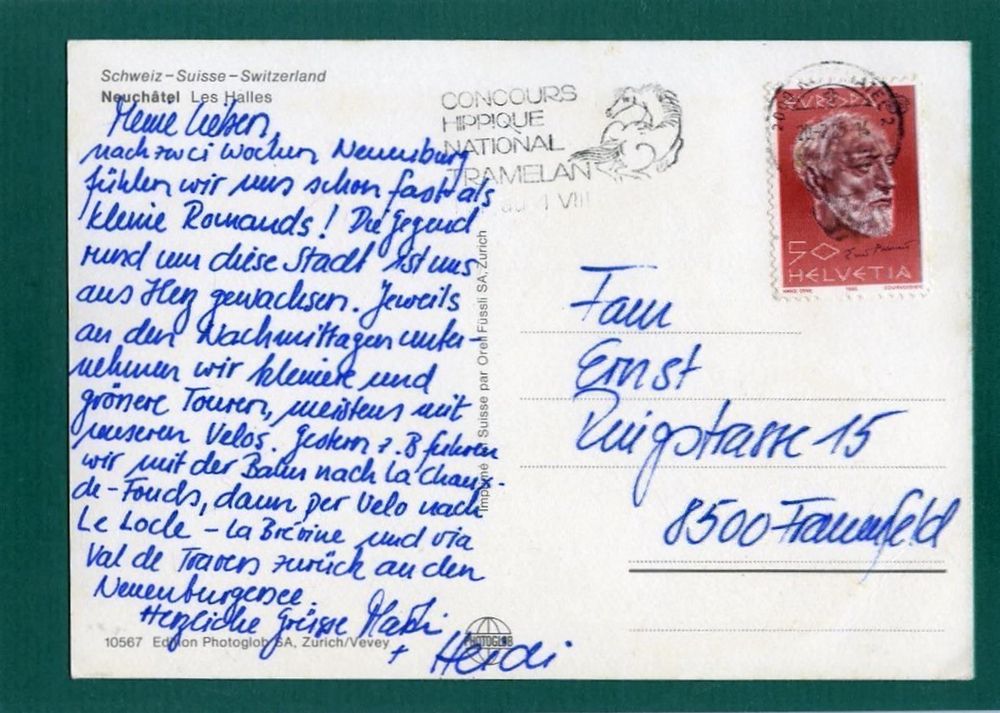 Schweiz – Suisse – Switzerland
Neuchâtel Les Halles
Meine Lieben,
nach zwei Wochen Neuenburg
fühlen wir uns schon fast als
kleine Romands! Die Gegend
rund um diese Stadt ist uns
ans Herz gewachsen. Jeweils
an den Nachmittagen unter-
nehmen wir kleinere und
grössere Touren, meistens mit
unseren Velos. Gestern z.B fuhren
wir mit der Bahn nach La Chaux-
de-Fonds, dann per Velo nach
Le Locle – La Brévine und via
Val de Travers zurück an den
Neuenburgersee.
Herzliche Grüsse
+ Heidi
10567 Edition Photoglob SA, Zürich/Vevey
PHOTOGLOB
Imprimé en Suisse par Orell Füssli SA, Zurich
CONCOURS
HIPPIQUE
NATIONAL
TRAMELAN
au 4 VIII
EUROPA
50
HELVETIA
1985 COURVOISIER
Fam
Ernst
Ringstrasse 15
8500 Frauenfeld